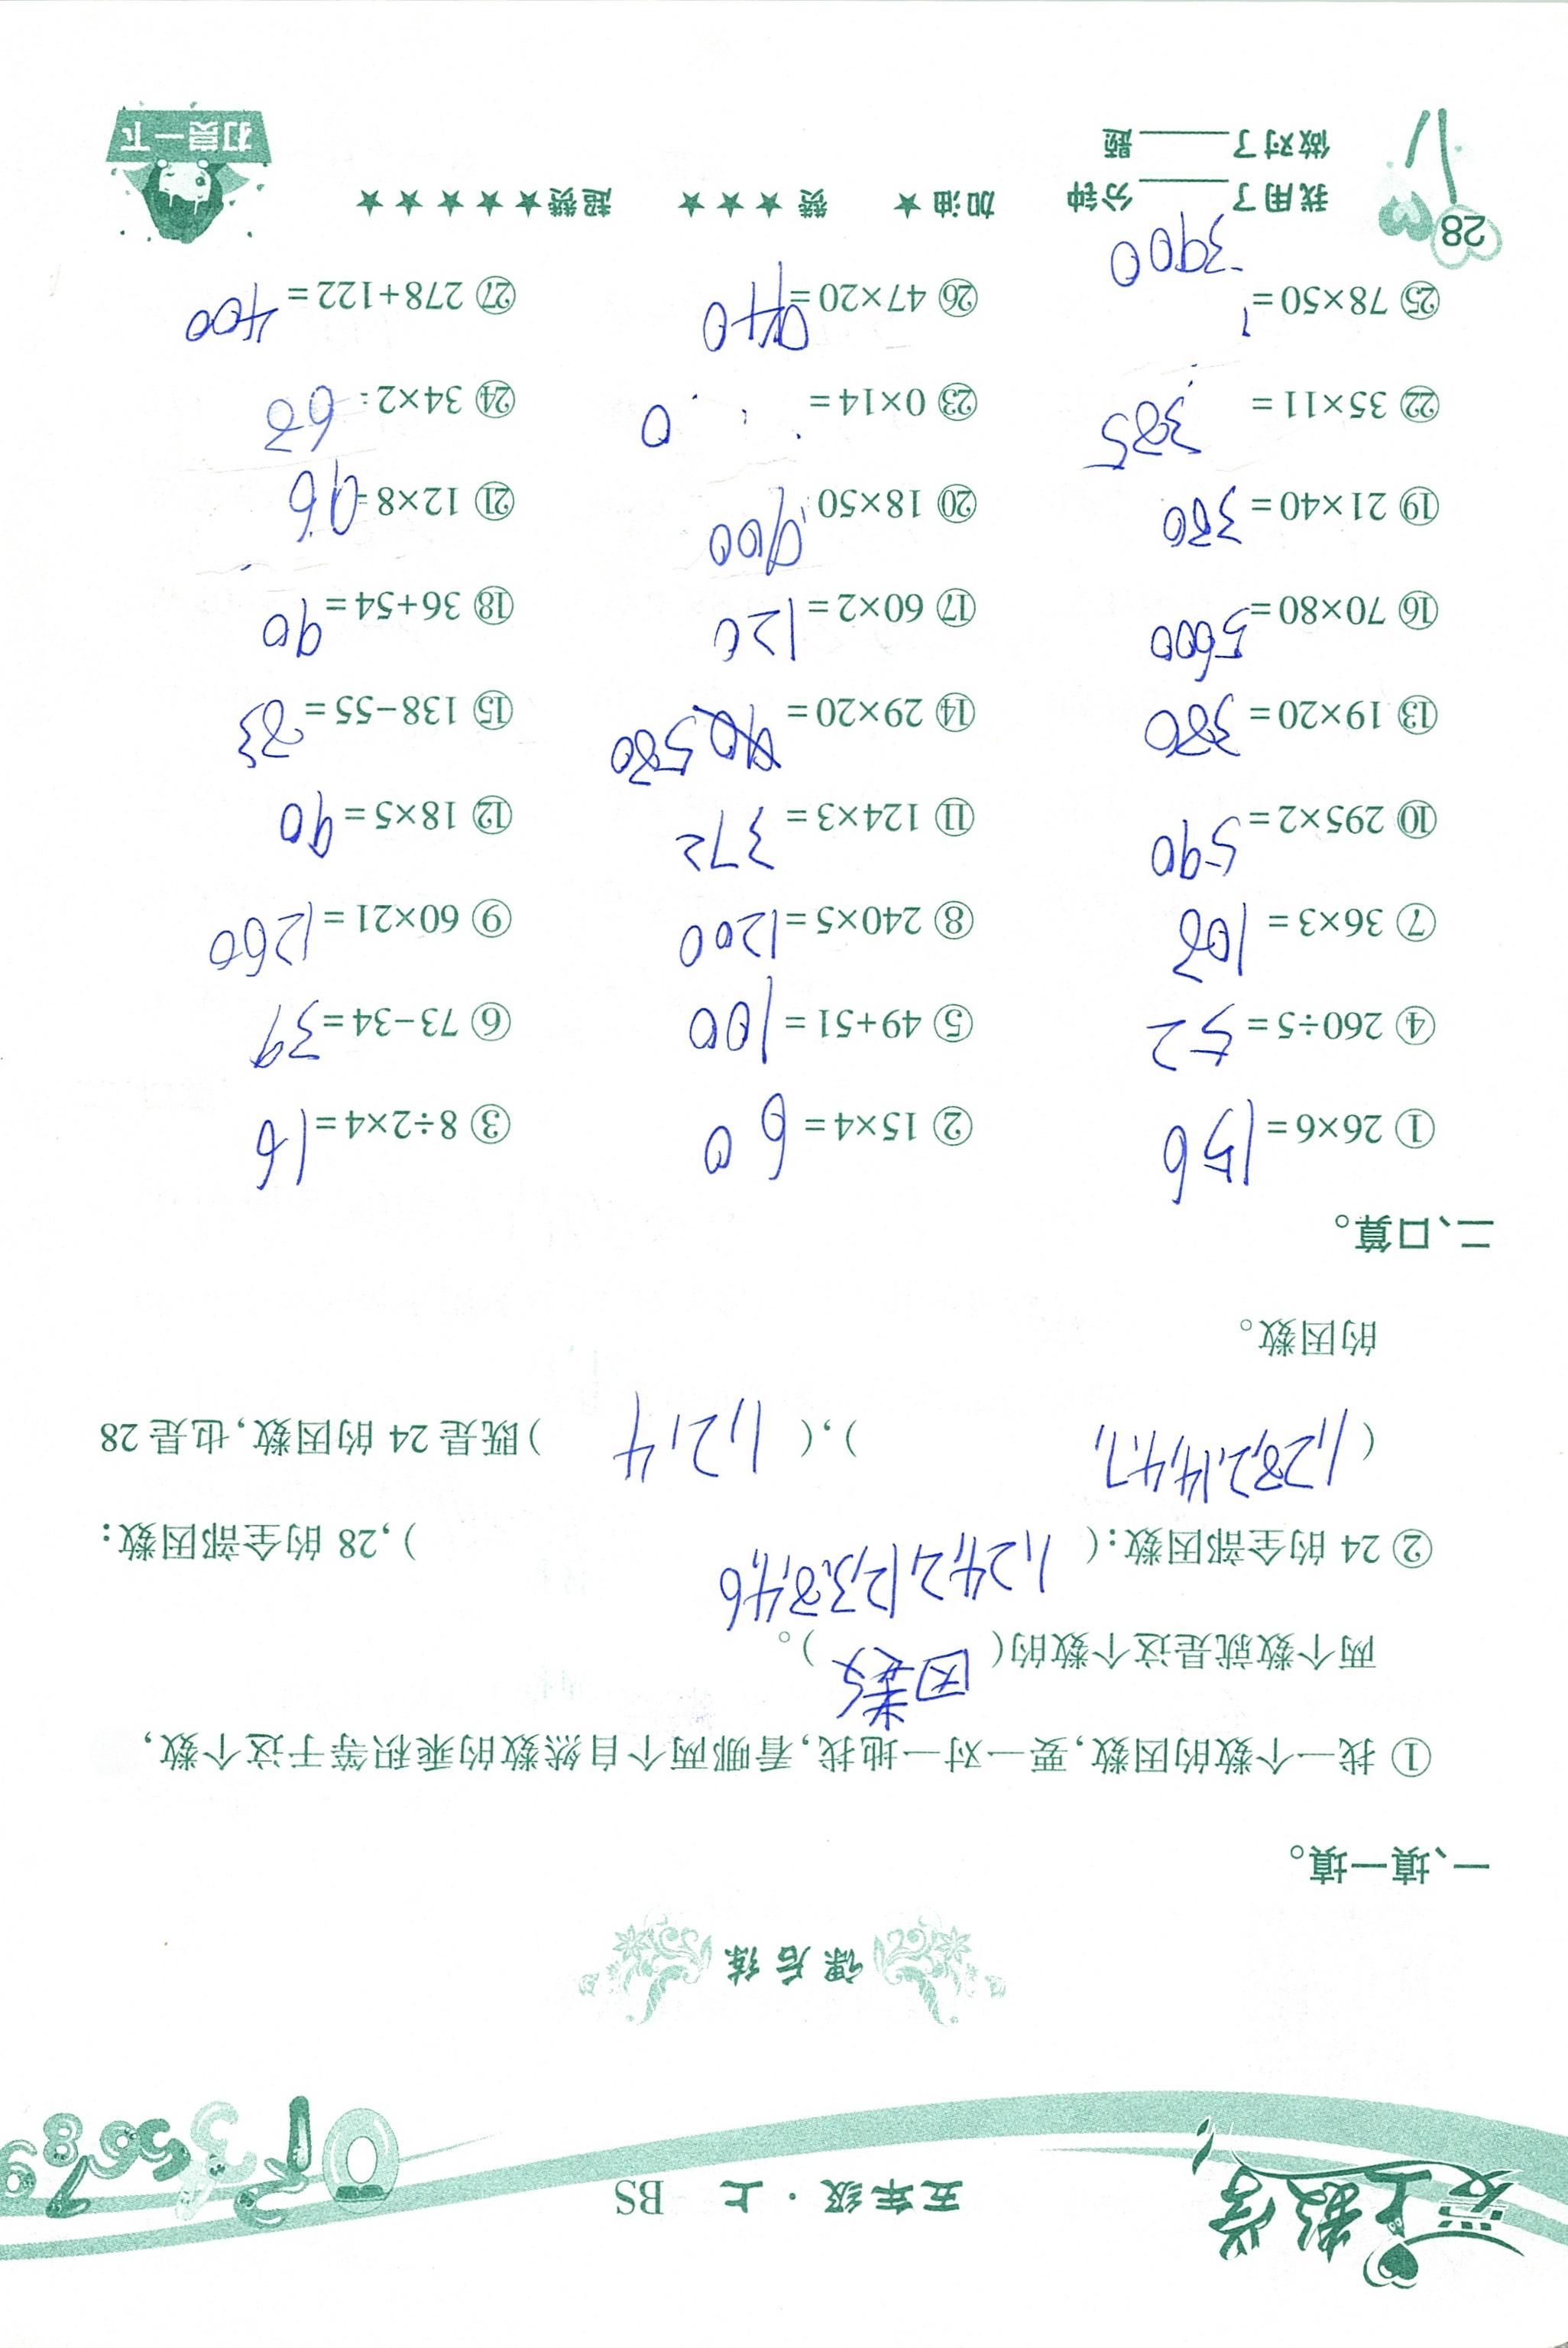 爱上数学
五年级·上 BS
课后练
一、填一填。
① 找一个数的因数,要一对一地找,看哪两个自然数的乘积等于这个数,
两个数就是这个数的(因数)。
② 24 的全部因数:(1,24,2,12,3,8,4,6),28 的全部因数:
(1,28,2,14,4,7,),(1,2,4)既是 24 的因数,也是 28
的因数。
二、口算。
① 26×6=156 ② 15×4=60 ③ 8÷2×4=16
④ 260÷5=52 ⑤ 49+51=100 ⑥ 73-34=39
⑦ 36×3=108 ⑧ 240×5=1200 ⑨ 60×21=1260
⑩ 295×2=590 ⑪ 124×3=372 ⑫ 18×5=90
⑬ 19×20=380 ⑭ 29×20=580 ⑮ 138-55=83
⑯ 70×80=5600 ⑰ 60×2=120 ⑱ 36+54=90
⑲ 21×40=380 ⑳ 18×50 900 ㉑ 12×8=96
㉒ 35×11=385 ㉓ 0×14=0 ㉔ 34×2=68
㉕ 78×50=3900 ㉖ 47×20=940 ㉗ 278+122=400
28
我用了____分钟
做对了____题
加油★ 赞★★★ 超赞★★★★★
打赏一下